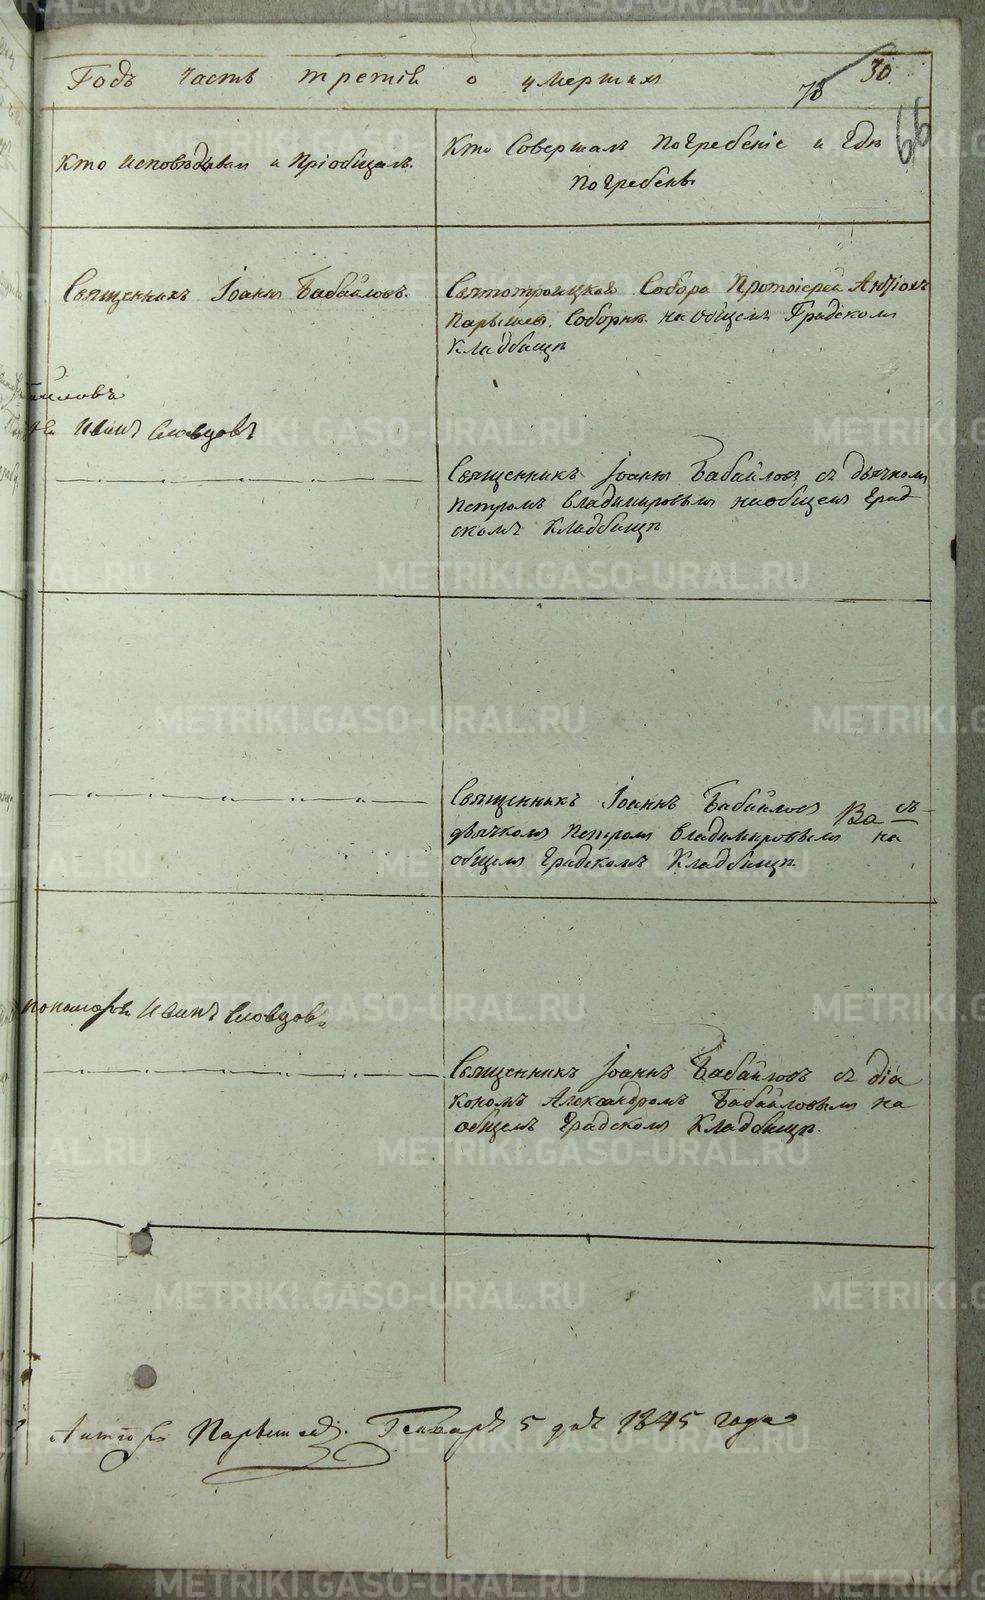 Годъ часть третія о умершихъ 30
70
66
Кто исповѣдывалъ и пріобщалъ.
Кто совершалъ погребеніе и гдѣ
погребенъ
Священникъ Іоаннъ Бабайловъ.
Святотроицкаго Собора Протоіерей Антіохъ
Парышевъ, Соборнѣ. на общемъ Градскомъ
Кладбищѣ
айловъ
Иванъ Словцовъ
Священникъ Іоаннъ Бабайловъ съ дьячкомъ
Петромъ Владимировымъ на общемъ Град
скомъ Кладбищѣ
Священникъ Іоаннъ Бабайловъ съ
дьячкомъ Петромъ Владимировымъ на
общемъ Градскомъ Кладбищѣ
пономарь Иванъ Словцовъ
Священникъ Іоаннъ Бабайловъ съ діа
кономъ Александромъ Бабайловымъ на
общемъ Градскомъ Кладбищѣ.
Парышевъ. Генваря 5 дня 1845 года
METRIKI.GASO-URAL.RU